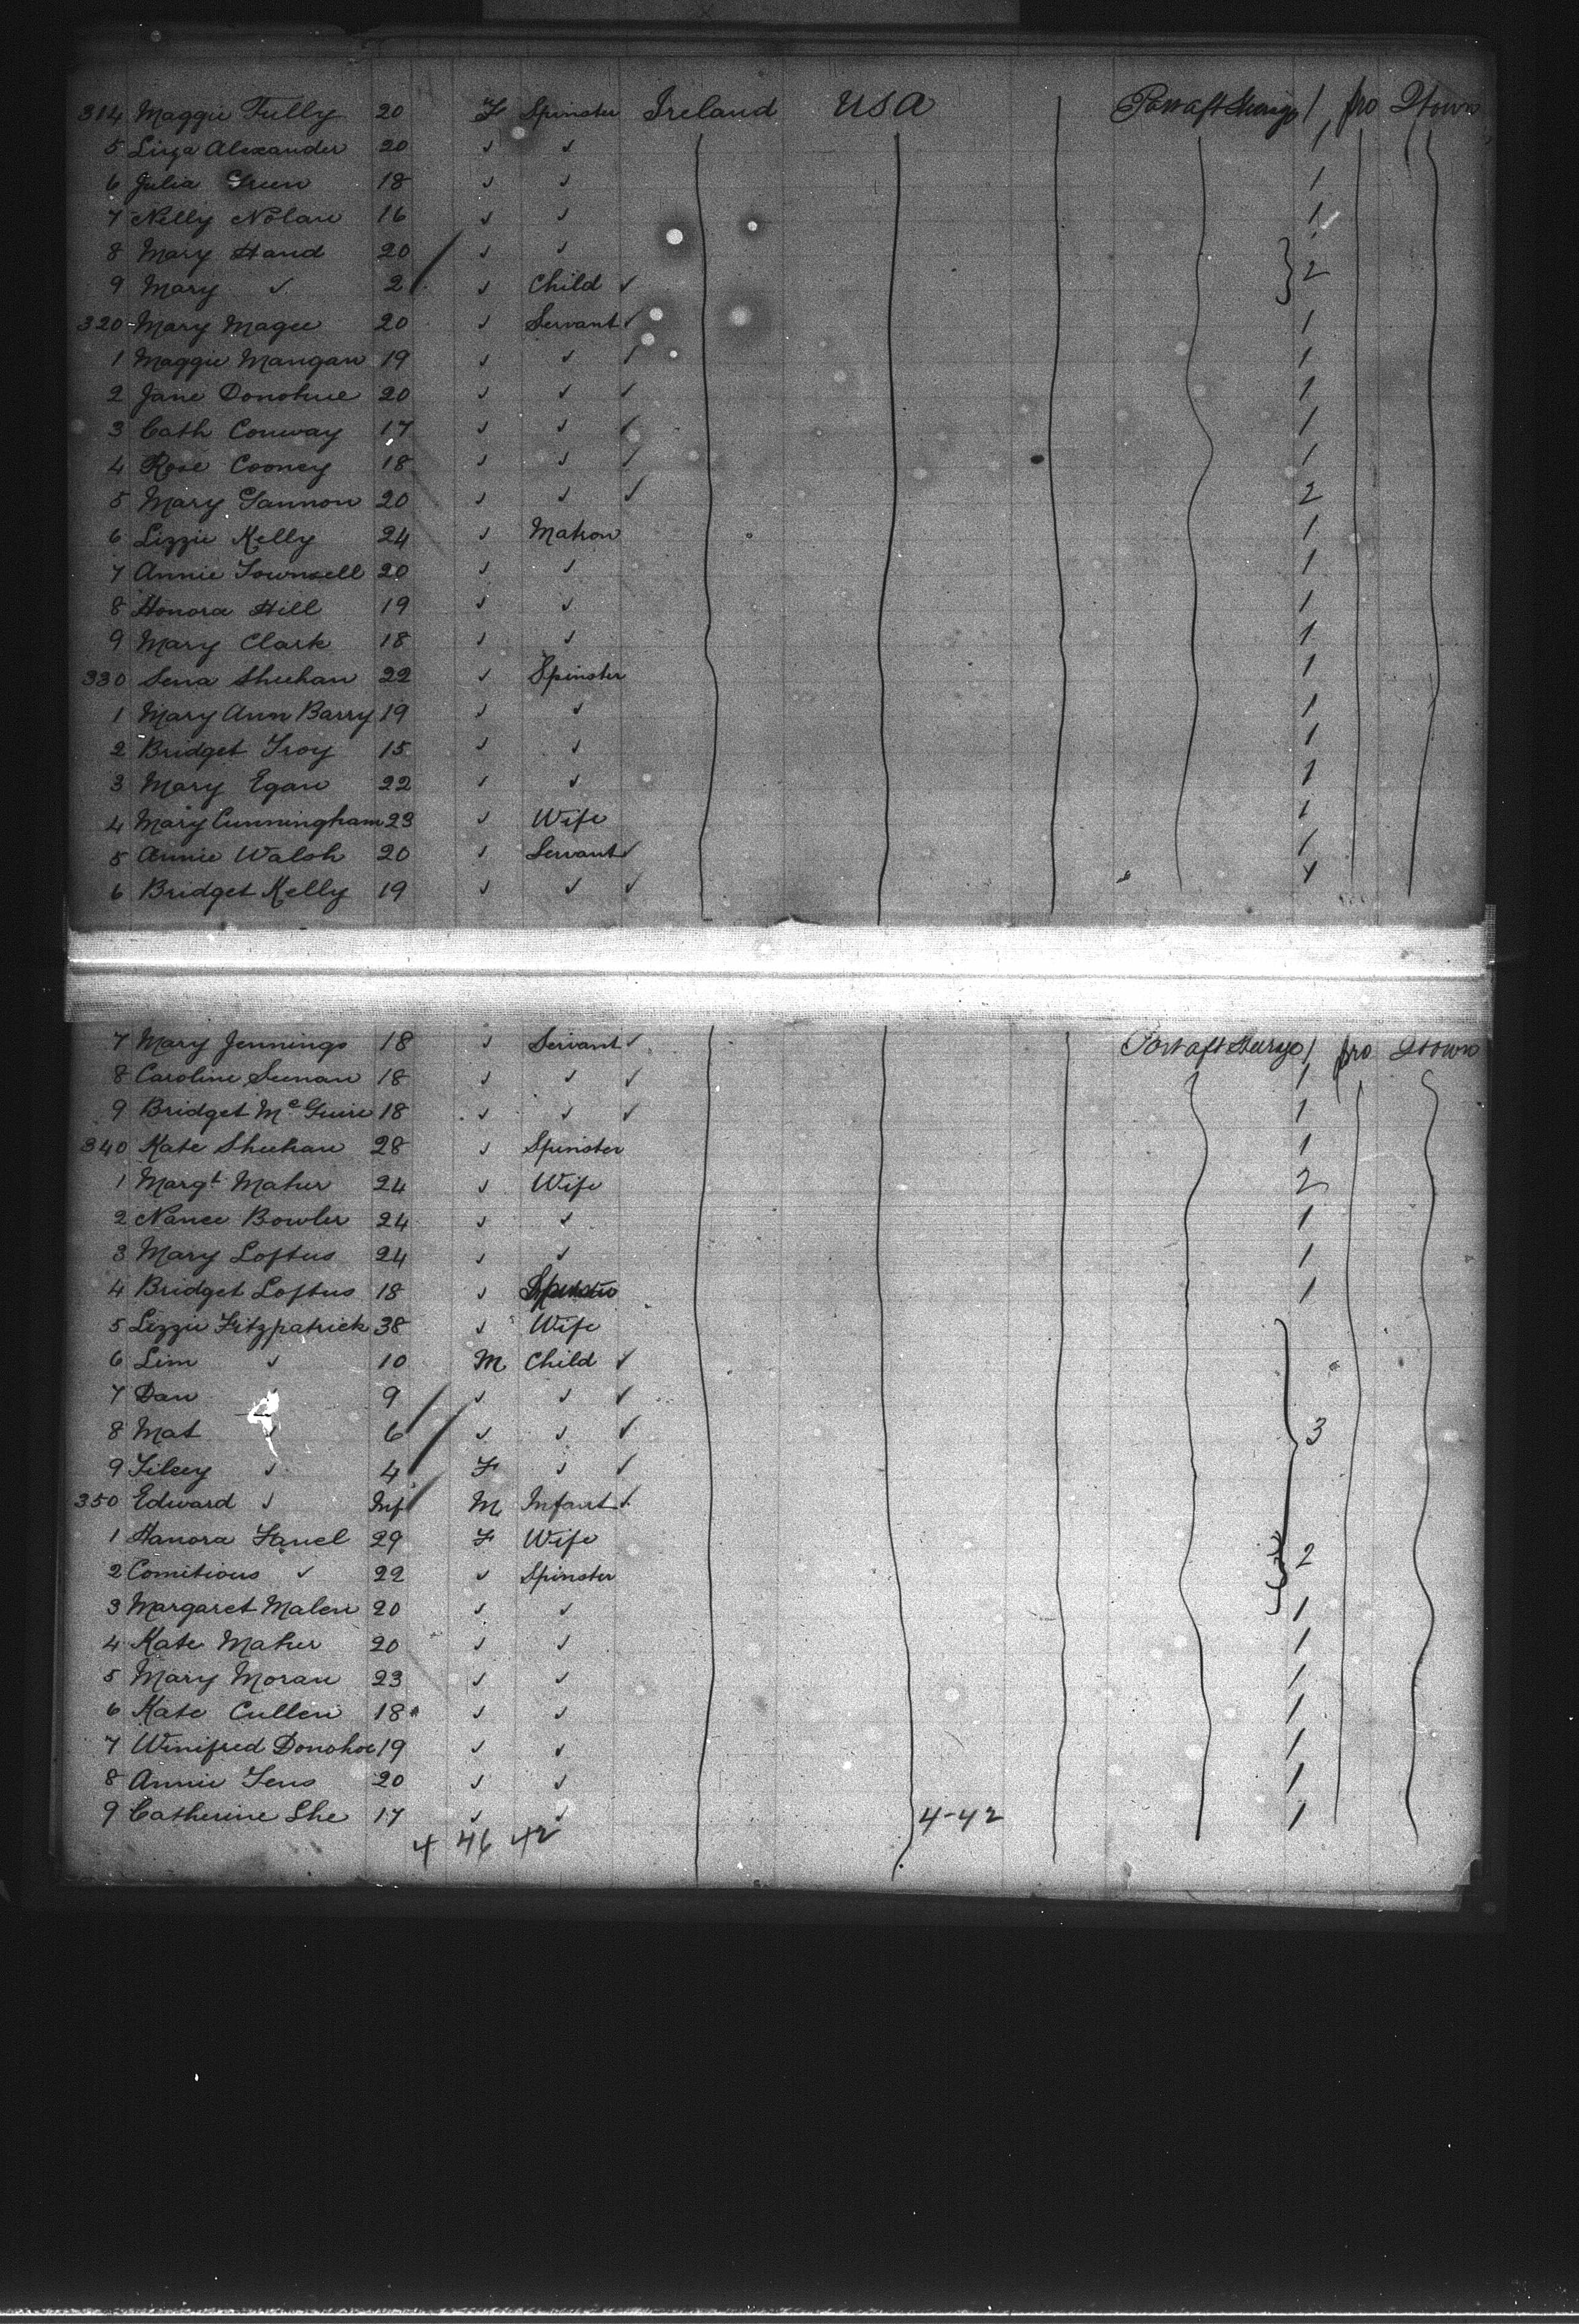 314 Maggie Tully 20 F Spinster Ireland USA Port aft Steerge 1 pro Qtown
5 Liza Alexander 20 ✓ ✓ 1
6 Julia Green 18 ✓ ✓ 1
7 Nelly Nolan 16 ✓ ✓ 1
8 Mary Hand 20 ✓ ✓
9 Mary ✓ 2 ✓ Child ✓ 2
320 Mary Magee 20 ✓ Servant ✓ 1
1 Maggie Mangan 19 ✓ ✓ ✓ 1
2 Jane Donohue 20 ✓ ✓ ✓ 1
3 Cath Conway 17 ✓ ✓ ✓ 1
4 Rose Cooney 18 ✓ ✓ ✓ 1
5 Mary Gannon 20 ✓ ✓ ✓ 2
6 Lizzie Kelly 24 ✓ Matron 1
7 Annie Townsell 20 ✓ ✓ 1
8 Honora Hill 19 ✓ ✓ 1
9 Mary Clark 18 ✓ ✓ 1
330 Sena Sheehan 22 ✓ Spinster 1
1 Mary Ann Barry 19 ✓ ✓ 1
2 Bridget Troy 15 ✓ ✓ 1
3 Mary Egan 22 ✓ ✓ 1
4 Mary Cunningham 23 ✓ Wife 1
5 Annie Walsh 20 ✓ Servant ✓ 1
6 Bridget Kelly 19 ✓ ✓ ✓
7 Mary Jennings 18 ✓ Servant ✓ Port aft Steerge 1 pro Qtown
8 Caroline Seenan 18 ✓ ✓ ✓ 1
9 Bridget McGuire 18 ✓ ✓ ✓ 1
340 Kate Sheehan 28 ✓ Spinster 1
1 Margt Maher 24 ✓ Wife 2
2 Nance Bowler 24 ✓ ✓ 1
3 Mary Loftus 24 ✓ ✓ 1
4 Bridget Loftus 18 ✓ 1
5 Lizzie Fitzpatrick 38 ✓ Wife
6 Lim ✓ 10 M Child ✓
7 Dan ✓ 9 ✓ ✓ ✓
8 Mat ✓ 6 ✓ ✓ ✓ 3
9 ✓ 4 F ✓ ✓
350 Edward ✓ Inf M Infant ✓
1 Hanora 29 F Wife 2
2 Comitious ✓ 22 ✓ Spinster
3 Margaret Malen 20 ✓ ✓ 1
4 Kate Maher 20 ✓ ✓ 1
5 Mary Moran 23 ✓ ✓ 1
6 Kate Cullen 18 ✓ ✓ 1
7 Winifred Donohoe 19 ✓ ✓ 1
8 Annie 20 ✓ ✓ 1
9 Catherine She 17 ✓ ✓ 4-42 1
4 46 42